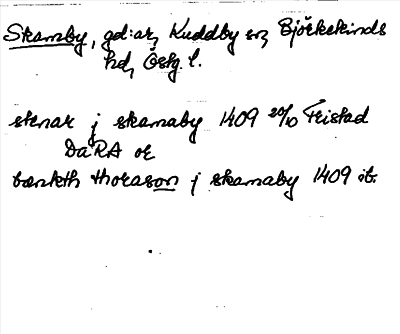 Skamby, gd:ar, Kuddby sn, Björkekinds
hd, Östg. l.
stenar j skamaby 1409 20/10 Fristad
DaRA or
bænkth thorason j skamaby 1409 ib.